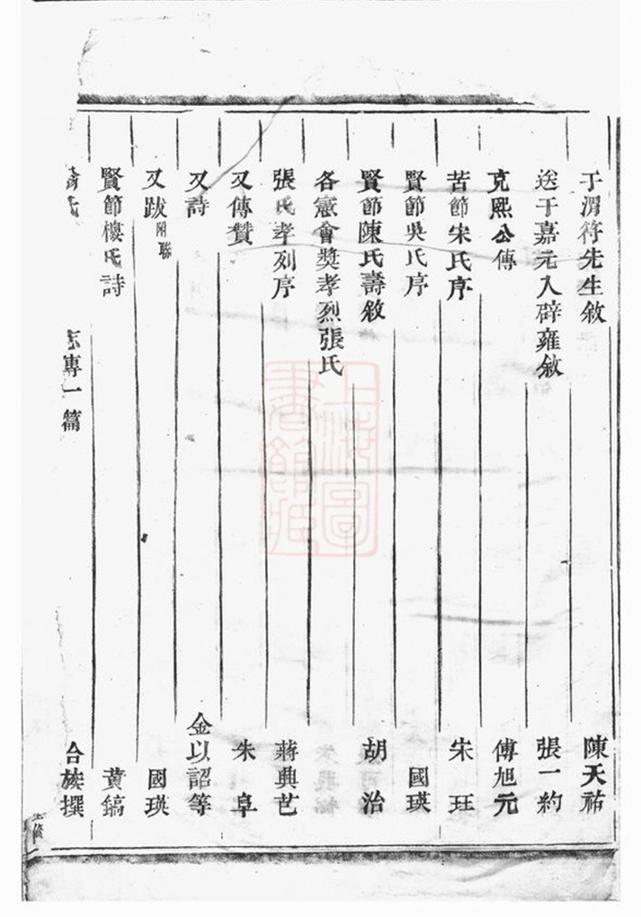 于渭符先生敘 陳天祐
送于嘉元入辟雍敘 張一約
克熙公傳 傅旭元
苦節宋氏序 朱玨
賢節吳氏序 國瑛
賢節陳氏壽敘 胡治
各憲會獎孝烈張氏
張氏孝列序 蔣典芑
又傳贊 朱阜
又詩 金以詔等
又跋附聯 國瑛
賢節樓氏詩 黃鎬
專一篇 合族撰
上海圖書館藏